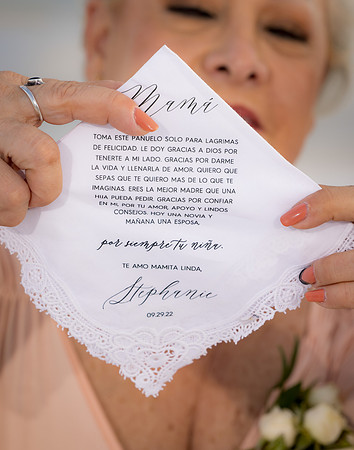 Mamá
TOMA ESTE PAÑUELO SOLO PARA LAGRIMAS
DE FELICIDAD. LE DOY GRACIAS A DIOS POR
TENERTE A MI LADO. GRACIAS POR DARME
LA VIDA Y LLENARLA DE AMOR. QUIERO QUE
SEPAS QUE TE QUIERO MAS DE LO QUE TE
IMAGINAS. ERES LA MEJOR MADRE QUE UNA
HIJA PUEDA PEDIR. GRACIAS POR CONFIAR
EN MI, POR TU AMOR, APOYO Y LINDOS
CONSEJOS. HOY UNA NOVIA Y
MAÑANA UNA ESPOSA,
por siempre tu niña.
TE AMO MAMITA LINDA,
Stephanie
09.29.22